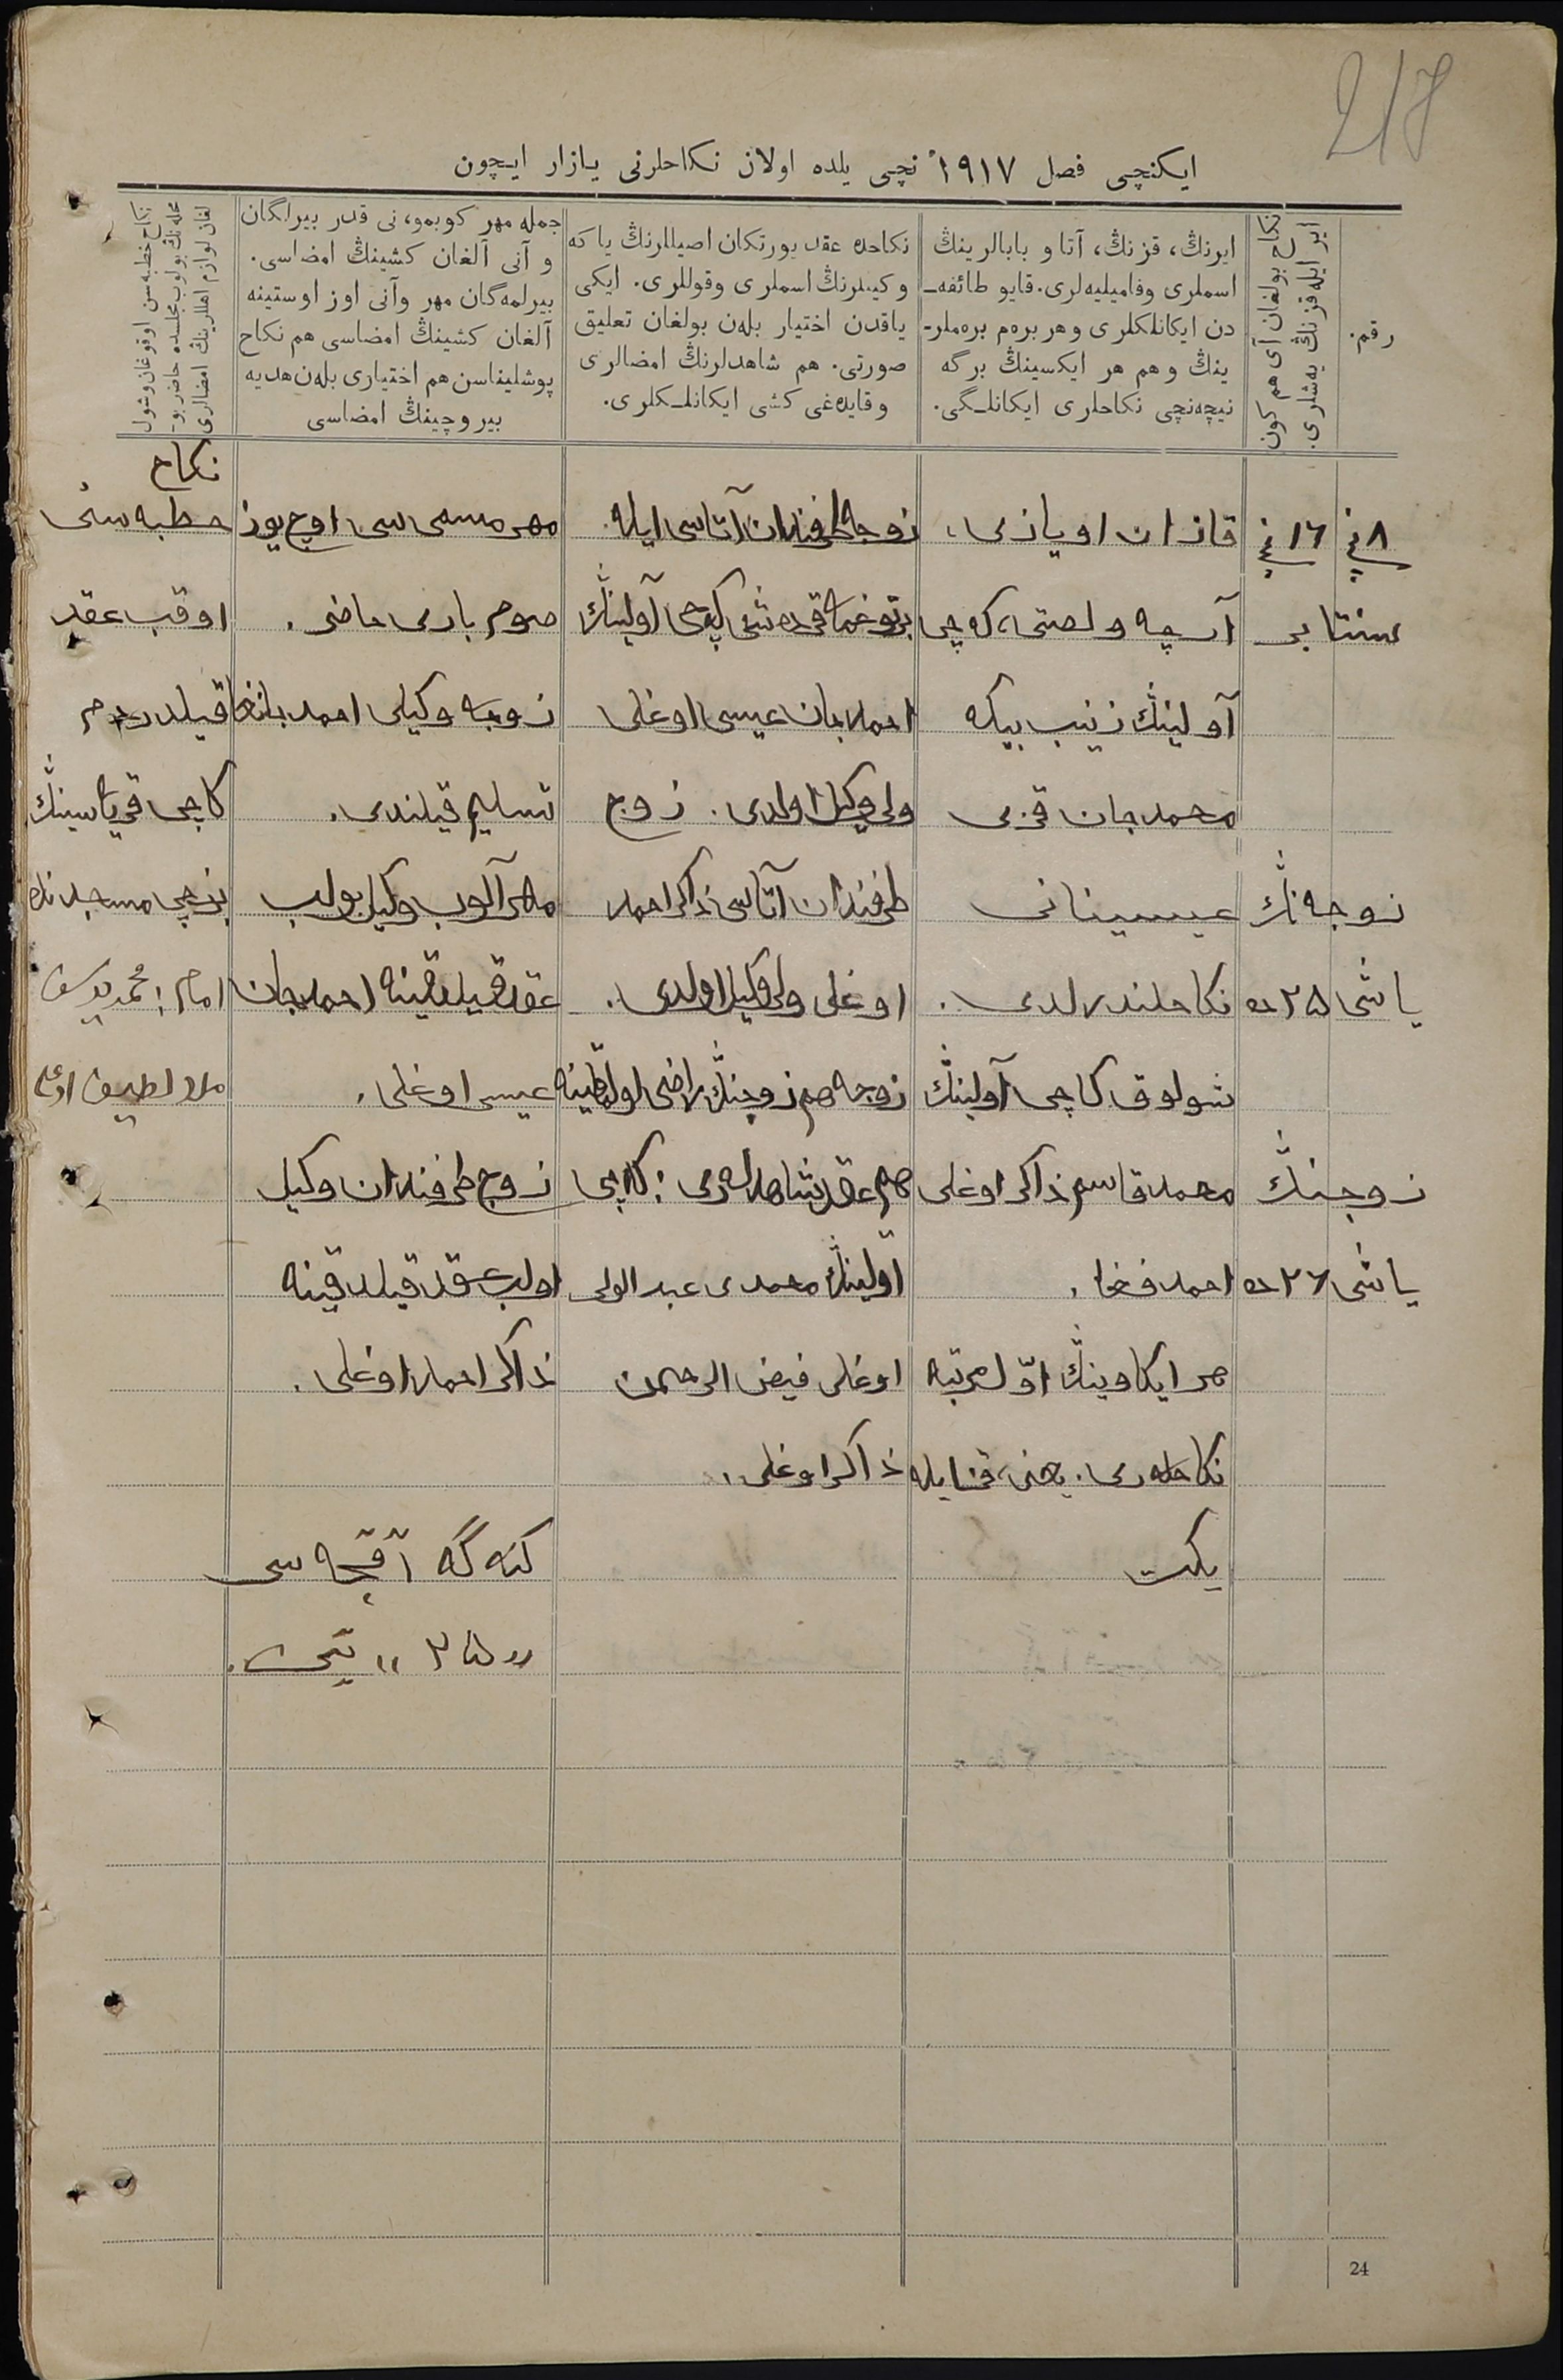 217
ایکنچی فصل ١٩١٧ نچی یلده اولان نکاحلرنی یازار ایچون
رقم.
نکاح بولغان آی هم کون
ایر ایله قزنڭ یەشلری.
ایرنڭ، قزنڭ، آتا و بابالرینڭ
اسملری وفامیلیەلری. قایو طائفە‌ـ
دن ایکانلکلری و هر برەم برەملر‌ـ
ینڭ و هم هر ایکسینڭ برگە
نیچەنچی نکاحلری ایکانلـگی.
نکاحدە عقد یورتکان اصیللرنڭ یا کە
و کیللرنڭ اسملری وقوللری. ایکی
یاقدن اختیار بلەن بولغان تعلیق
صورتی. هم شاهدلرنڭ امضالری
و قایدەغی کشی ایکانلـکلری.
جملە مهر کوبمو، نی قدر بیرلگان
و آنی آلغان کشینڭ امضاسی.
بیرلمەگان مهر وآنی اوز اوستینە
آلغان کشینڭ امضاسی هم نکاح
پوشلیناسن هم اختیاری بلەن هدیە
بیروچینڭ امضاسی
نکاح خطبەسن اوقوغان وشول
محلەنڭ بولوب مجلسدە حاضر بو‌ـ
لغان لوازم اهللرینڭ امضالری
٨ نچی
١٦ نچی
سنتابر
زوجەنڭ
یاشی ٢٥ دە
زوجنڭ
یاشی ٢٦ دە
قازان اویازی،
آرچە ولصتی، کەچی
آولینڭ زینب بیکە
محمدجان قزی
عیسینانی
نکاحلندرلدی.
شولوق کاچی آولینڭ
محمد قاسم ذاکر اوغلی
احمدفغا.
هر ایکاوینڭ اوّل مرتبە
نکاحلەری. یعنی، قز ایلە
یکت
زوجە طرفندان آتاسی ایلە
بر توغمە قرەشی کەچی آولینڭ
احمدجان عیسی اوغلی
ولی وکیل اولدی. زوج
طرفندان آتاسی ذاکر احمد
اوغلی ولی وکیل اولدی.
زوجە هم زوجنڭ راضی اولدقینە
هم عقد شاهدلەری: کەچی
آولینڭ محمدی عبد الولی
اوغلی فیض الرحمن
ذاکر اوغلی.
مهر مسمی سی اوچ یوز
صوم باری حاضر.
زوجە وکیلی احمدجانغا
تسلیم قیلندی.
مهر آلوب وکیل بولب
عقد قیلدقینە احمدجان
عیسی اوغلی.
زوج طرفندان وکیل
اولب عقد قیلدقینە
ذاکر احمد اوغلی.
کنەگە آقچە سی
„ ٢٥ „ تین.
نکاح
خطبە سنی
اوقب عقد
قیلدردم
کاچی قریەسینڭ
برنچی مسجدنڭ
امام: محمد یوسف
ملا لطیف اوغلی
24